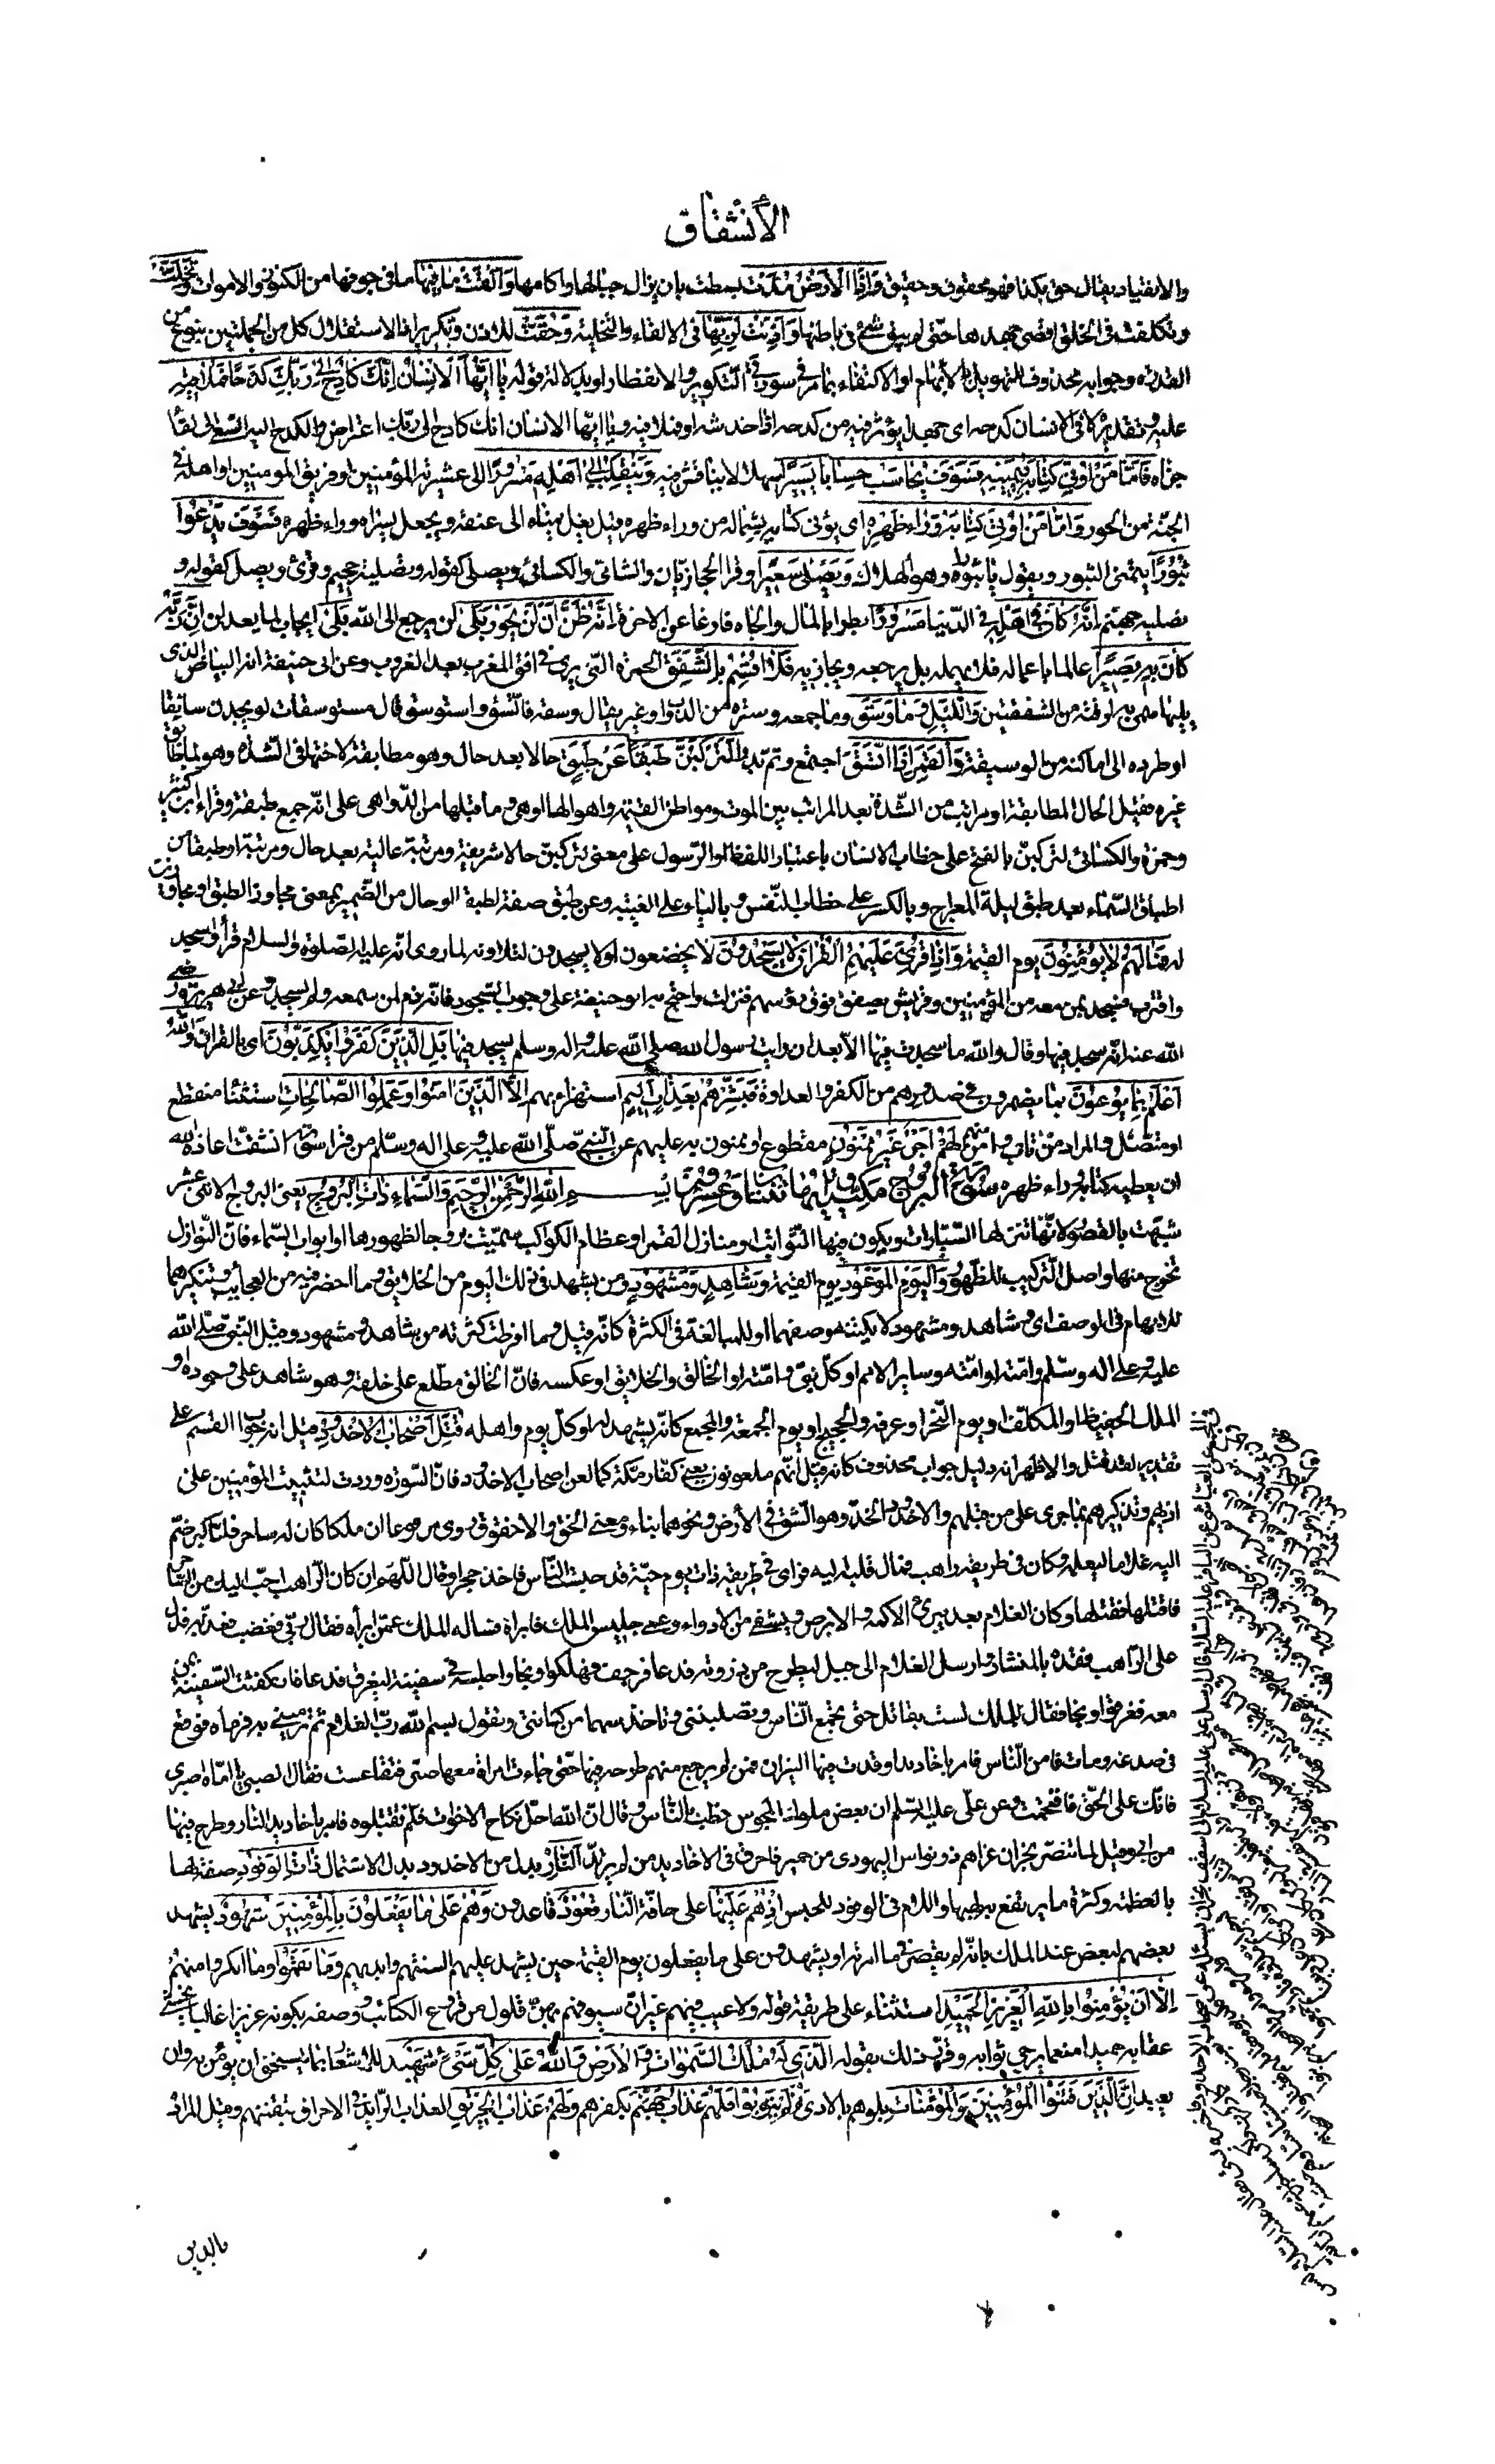 الانشقاق
والانقياد يقال حق بكذا فهو محقوق وحقيق وَاِذَا الْاَرْضُ مُدَّتْ بسطت بان يزال جبالها واكامها وَاَلْقَتْ مَا فِيهَا ما فى جوفها من الكنوز والاموات وَتَخَلَّتْ
وتكلفت فى الخلق اقصى جهدها حتى لم يبق شئ فى باطنها وَاَذِنَتْ لِرَبِّهَا فى الالقاء والتخلية وَحُقَّتْ للاذن وتكرير اذا لاستقلال كل من الجملتين بنوع من
القدرة وجوابه محذوف للتهويل بالابهام او الاكتفاء بما مر فى سورة التكوير والانفطار او بدلالة قوله يَا اَيُّهَا الْاِنْسَانُ اِنَّكَ كَادِحٌ اِلٰى رَبِّكَ كَدْحًا فَمُلَاقِيهِ
عليه وتقديره لاقى الانسان كدحه اى جهدا يؤثر فيه من كدحه اذا خدشه او فملاقيه ويا ايها الانسان انك كادح الى ربك اعتراض والكدح اليه السعى الى لقاء
جزاه فَاَمَّا مَنْ اُوتِىَ كِتَابَهُ بِيَمِينِهِ فَسَوْفَ يُحَاسَبُ حِسَابًا يَسِيرًا سهلا لا يناقش فيه وَيَنْقَلِبُ اِلٰى اَهْلِهِ مَسْرُورًا الى عشيرته المؤمنين او فريق المومنين او اهله فى
الجنة من الحور وَاَمَّا مَنْ اُوتِىَ كِتَابَهُ وَرَاءَ ظَهْرِهِ اى يؤتى كتابه بشماله من وراء ظهره قيل يغل يمناه الى عنقه ويجعل يسراه وراء ظهره فَسَوْفَ يَدْعُوا
ثُبُورًا يتمنى الثبور ويقول يا ثبوراه وهو الهلاك وَيَصْلٰى سَعِيرًا وقرا الحجازيان والشامى والكسائى ويصلى كقوله وتصلية جحيم وقرئ ويصلى كقوله و
نصليه جهنم اِنَّهُ كَانَ فِى اَهْلِهِ فى الدنيا مَسْرُورًا بطرا بالمال والجاه فارغا عن الاخرة اِنَّهُ ظَنَّ اَنْ لَنْ يَحُورَ بَلٰى لن يرجع الى الله بَلٰى ايجاب لما بعد لن اِنَّ رَبَّهُ
كَانَ بِهِ بَصِيرًا عالما باعماله فلا يهمله بل يرجعه ويجازيه فَلَا اُقْسِمُ بِالشَّفَقِ الحمرة التى يرى فى افق المغرب بعد الغروب وعن ابى حنيفة انه البياض الذى
يليها سمى به لرقته من الشفقة وَاللَّيْلِ وَمَا وَسَقَ وما جمعه وستره من الدواب وغيرها يقال وسقه فاتسق واستوسق قال مستوسقات لو يجدن سايقا
او طرده الى اماكنه من الوسيقة وَالْقَمَرِ اِذَا اتَّسَقَ اجتمع وتم بدرا لَتَرْكَبُنَّ طَبَقًا عَنْ طَبَقٍ حالا بعد حال وهو مطابقة لاختها فى الشدة وهو لما طابق
غيره فقيل للحال المطابقة او مراتب من الشدة بعد المراتب بين الموت ومواطن القيمة واهوالها او هى وما قبلها من الدواهى على انه جمع طبقة وقراء ابن كثير
وحمزة والكسائى لتركبن بالفتح على خطاب الانسان باعتبار اللفظ او الرسول على معنى لتركبن حالا شريفة ومرتبة عالية بعد حال ومرتبة او طبقا من
اطباق السماء بعد طبق ليلة المعراج وبالكسر على خطاب النفس وبالياء على الغيبة وعن طبق صفة لطبقا او حال من الضمير بمعنى مجاوز الطبق او مجاوزين
له فَمَا لَهُمْ لَا يُؤْمِنُونَ يوم القيمة وَاِذَا قُرِئَ عَلَيْهِمُ الْقُرْاٰنُ لَا يَسْجُدُونَ لا يخضعون او لا يسجدون لتلاوته لما روى انه عليه الصلوة والسلام قرأ واسجد
واقترب فسجد بمن معه من المؤمنين وقريش يصفق فوق رؤسهم فنزلت واحتج به ابو حنيفة على وجوب السجود فانه ذم لمن سمعه ولم يسجد وعن ابى هريرة رضى
الله عنه انه سجد فيها وقال والله ما سجدت فيها الا بعد ان رايت رسول الله صلى الله عليه واله وسلم يسجد فيها بَلِ الَّذِينَ كَفَرُوا يُكَذِّبُونَ اى بالقران وَاللهُ
اَعْلَمُ بِمَا يُوعُونَ بما يضمرون فى صدورهم من الكفر والعداوة فَبَشِّرْهُمْ بِعَذَابٍ اَلِيمٍ استهزاء بهم اِلَّا الَّذِينَ اٰمَنُوا وَعَمِلُوا الصَّالِحَاتِ استثناء منقطع
او متصل والمراد من تاب وامن منهم لَهُمْ اَجْرٌ غَيْرُ مَمْنُونٍ مقطوع او ممنون به عليهم عن النبى صلى الله عليه وعلى اله وسلم من قرا سورة انشقت اعاذه الله
ان يعطيه كتابه وراء ظهره سورة البروج مكية وايها ثنتان وعشرون بسم الله الرحمن الرحيم وَالسَّمَاءِ ذَاتِ الْبُرُوجِ يعنى البروج الاثنى عشر
شبهت بالقصور لانها تنزلها السيارات ويكون فيها الثوابت او منازل القمر او عظام الكواكب سميت بروجا لظهورها او ابواب السماء فان النوازل
تخرج منها واصل التركيب للظهور وَالْيَوْمِ الْمَوْعُودِ يوم القيمة وَشَاهِدٍ وَمَشْهُودٍ ومن يشهد فى ذلك اليوم من الخلايق وما احضر فيه من العجايب وتنكيرهما
للابهام فى الوصف اى وشاهد ومشهود لا يكتنه وصفهما او للمبالغة فى الكثرة كانه قيل وما افرطت كثرته من شاهد ومشهود وقيل النبى صلى الله
عليه وعلى اله وسلم وامته او امته وساير الامم او كل نبى وامته او الخالق والخلايق او عكسه فان الخالق مطلع على خلقه وهو شاهد على وجوده او
الملك الحفيظ او المكلف او يوم النحر او عرفة والحجيج او يوم الجمعة والمجمع كانه يشهد له او كل يوم واهله قُتِلَ اَصْحَابُ الْاُخْدُودِ قيل انه جواب القسم على
تقدير لقد قتل والاظهر انه دليل جواب محذوف كانه قيل انهم ملعونون يعنى كفار مكة كما لعن اصحاب الاخدود فان السورة وردت لتثبيت المؤمنين على
اذيهم وتذكيرهم بما جرى على من قبلهم والاخدود الخد وهو الشق فى الارض ونحوهما بناء ومعنى الخق والاحقوق روى مرفوعا ان ملكا كان له ساحر فلما كبر ضم
اليه غلاما ليعلمه وكان فى طريقه راهب فمال قلبه اليه فراى فى طريقه ذات يوم حية قد حبست الناس فاخذ حجرا وقال اللهم ان كان الراهب احب اليك من الساحر
فاقتلها فقتلها وكان الغلام بعد يبرئ الاكمه والابرص ويشفى من الادواء وعمى جليس الملك فابراه فساله الملك عمن ابراه فقال ربى فغضب فعذبه فدل
على الراهب فقده بالمنشار وارسل الغلام الى جبل ليطرح من ذروته فدعا فرجفت فهلكوا ونجا واجلسه فى سفينة ليغرق فدعا فانكفئت السفينة بمن
معه فغرقوا ونجا فقال للملك لست بقاتلى حتى تجمع الناس وتصلبنى وتاخذ سهما من كنانتى وتقول بسم الله رب الغلام ثم ترمينى به فرماه فوقع
فى صدغه ومات فامن الناس فامر باخاديد اوقدت فيها النيران فمن لم يرجع منهم طرحه فيها حتى جاءت امراة معها صبى فتقاعست فقال الصبى يا اماه اصبرى
فانك على الحق فاقتحمت وعن على عليه السلم ان بعض ملوك المجوس خطب بالناس وقال ان الله احل نكاح الاخوات فلم تقبلوه فامر باخاديد النار وطرح فيها
من ابى وقيل لما تنصر نجران غزاهم ذو نواس اليهودى من حمير فاحرق فى الاخاديد من لم يرتد النَّارِ بدل من الاخدود بدل الاشتمال ذَاتِ الْوَقُودِ صفة لها
بالعظمة وكثرة ما يرتفع به لهبها واللام فى الوقود للجنس اِذْ هُمْ عَلَيْهَا على حافة النار قُعُودٌ قاعدون وَهُمْ عَلٰى مَا يَفْعَلُونَ بِالْمُؤْمِنِينَ شُهُودٌ يشهد
بعضهم لبعض عند الملك بانه لم يقصر فيما امر به او يشهدون على ما يفعلون يوم القيمة حين يشهد عليهم السنتهم وايديهم وَمَا نَقَمُوا وما انكروا منهم
اِلَّا اَنْ يُؤْمِنُوا بِاللهِ الْعَزِيزِ الْحَمِيدِ استثناء على طريقة قوله ولا عيب فيهم غير ان سيوفهم بهن فلول من قراع الكتائب ووصفه بكونه عزيزا غالبا يخشى
عقابه حميدا منعما يرجى ثوابه وقرر ذلك بقوله الَّذِى لَهُ مُلْكُ السَّمٰوَاتِ وَالْاَرْضِ وَاللهُ عَلٰى كُلِّ شَىْءٍ شَهِيدٌ للاشعار بما يستحق ان يؤمن به وان
يعبد اِنَّ الَّذِينَ فَتَنُوا الْمُؤْمِنِينَ وَالْمُؤْمِنَاتِ بلوهم بالاذى ثُمَّ لَمْ يَتُوبُوا فَلَهُمْ عَذَابُ جَهَنَّمَ بكفرهم وَلَهُمْ عَذَابُ الْحَرِيقِ العذاب الزايد فى الاحراق بفتنتهم وقيل المراد
بالذين